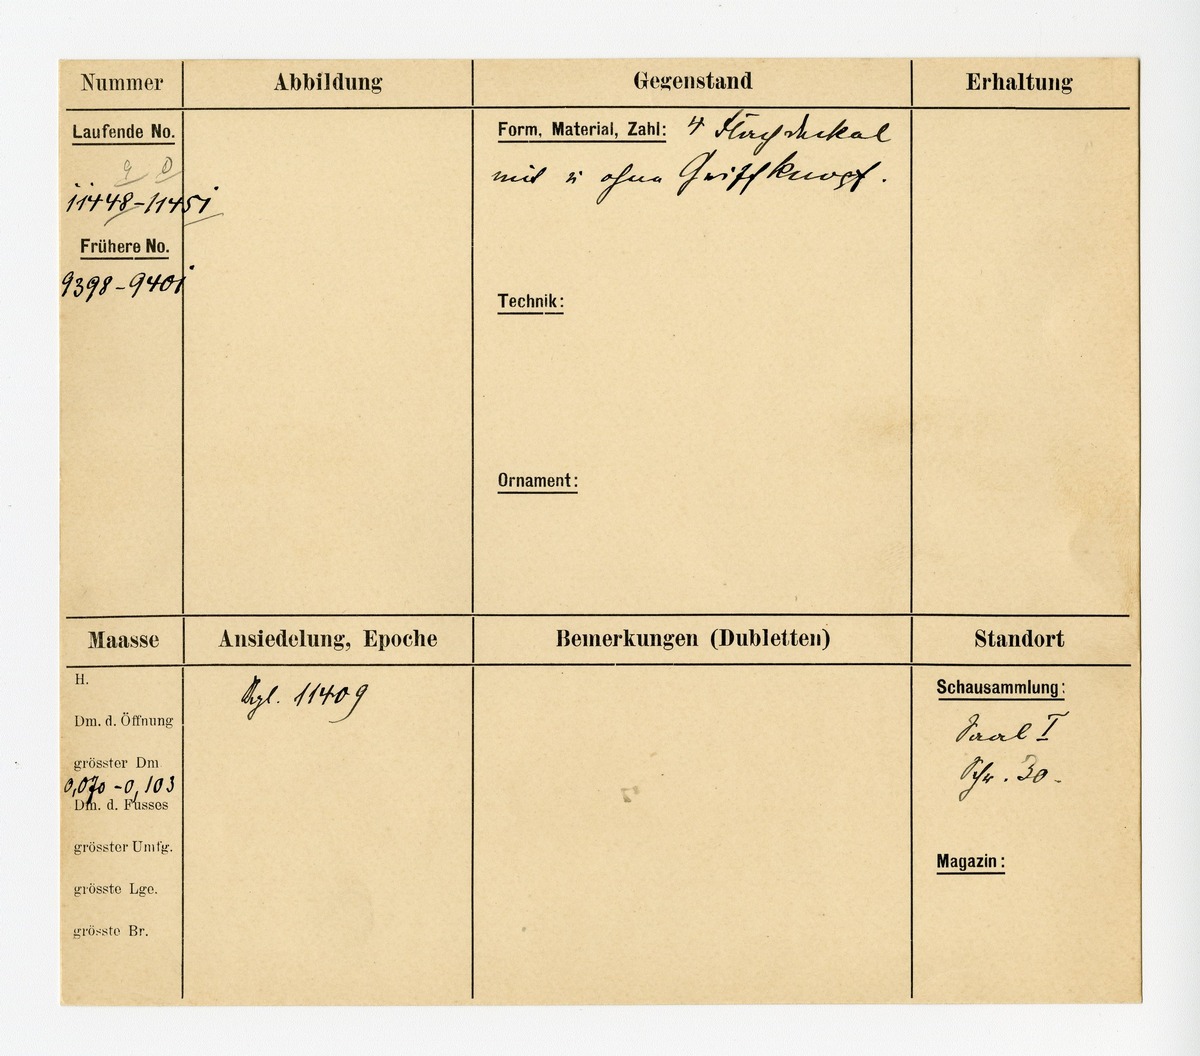 Nummer
Abbildung
Gegenstand
Erhaltung
Laufende No.
11448-11451
Frühere No.
9398-9401
Form, Material, Zahl: 4 Flachdeckel
mit u ohne Griffknopf.
Technik:
Ornament:
Maasse
Ansiedelung, Epoche
Bemerkungen (Dubletten)
Standort
H.
Dm. d. Öffnung
grösster Dm
0,070-0,103
Dm. d. Fusses
grösster Umfg.
grösste Lge.
grösste Br.
Vgl. 11409
Schausammlung:
Saal I
Schr. 30.
Magazin: